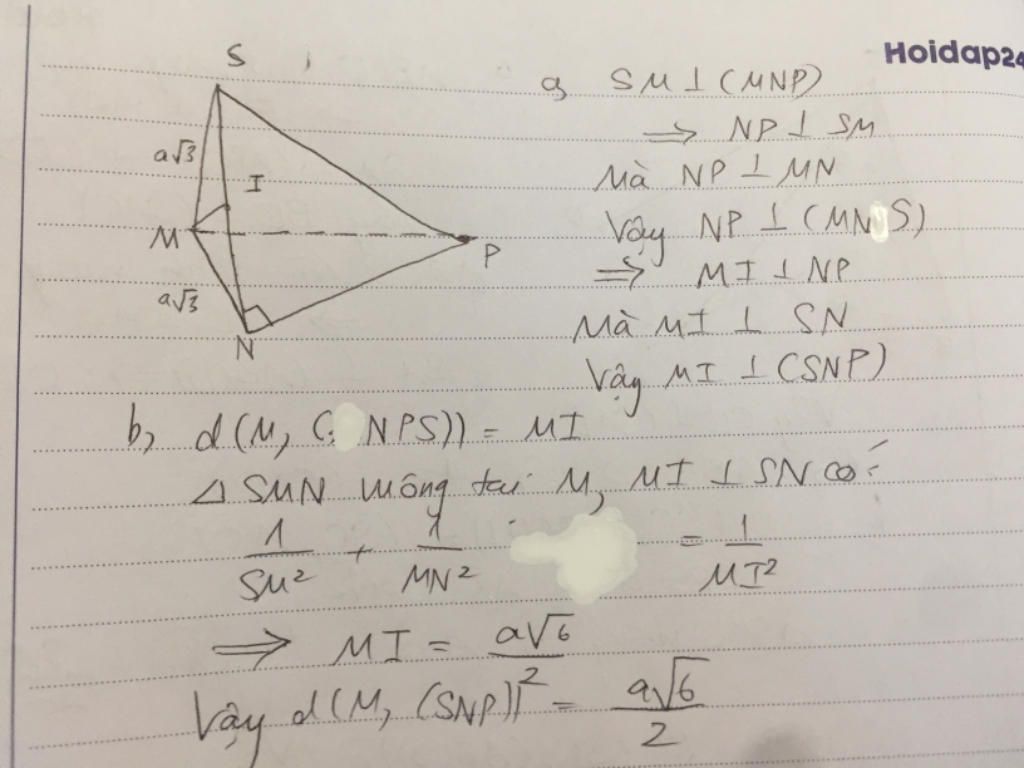 Hoidap24
S
a√3
I
M
P
a√3
N
a, SM ⊥ (MNP)
⇒ NP ⊥ SM
Mà NP ⊥ MN
Vậy NP ⊥ (MNS)
⇒ MI ⊥ NP
Mà MI ⊥ SN
Vậy MI ⊥ (SNP)
b, d(M, (NPS)) = MI
△ SMN vuông tại M, MI ⊥ SN có:
1/SM² + 1/MN² = 1/MI²
⇒ MI = a√6/2
Vậy d(M, (SNP)) = a√6/2